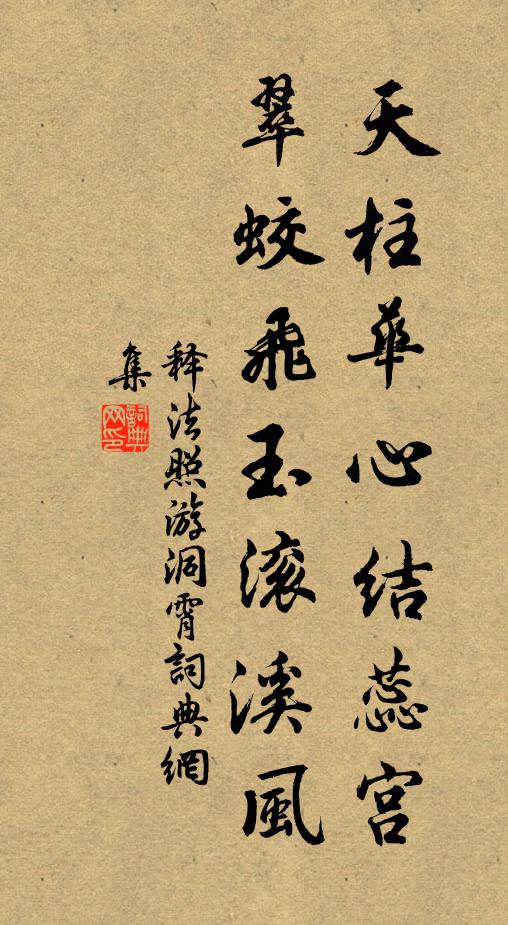 天柱華心結蕊宫
翠蛟飛玉滚溪風
释法照游洞霄詞典網
集
詞典网印